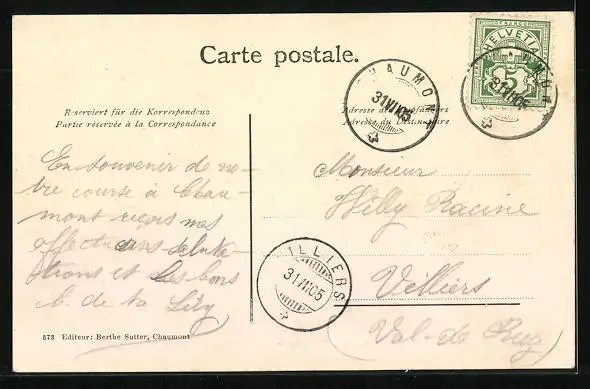 Carte postale.
HELVETIA
FRANCO
5
CHAUMONT
31 VII 05
CHAUMONT
31 VII 05
Reserviert für die Korrespondenz
Partie réservée à la Correspondance
Adresse des Empfängers
Adresse du Destinataire
En souvenir de no-
tre course à Chau-
mont reçois mes
affectueuses saluta-
tions et les bons
b. de ta Lily
Monsieur
Willy Racine
Villiers
(Val-de Ruz)
VILLIERS
31 VII 05
573 Editeur: Berthe Sutter, Chaumont